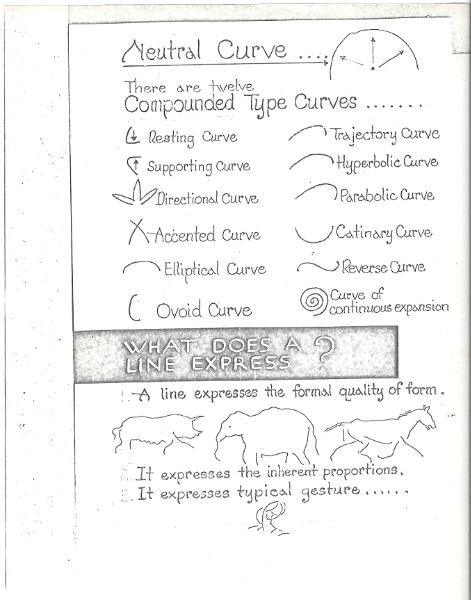 Neutral Curve ....
There are twelve
Compounded Type Curves .......
Resting Curve
Supporting Curve
Directional Curve
Accented Curve
Elliptical Curve
Ovoid Curve
Trajectory Curve
Hyperbolic Curve
Parabolic Curve
Catinary Curve
Reverse Curve
Curve of
continuous expansion
WHAT DOES A
LINE EXPRESS ?
1. A line expresses the formal quality of form.
2. It expresses the inherent proportions.
3. It expresses typical gesture ......